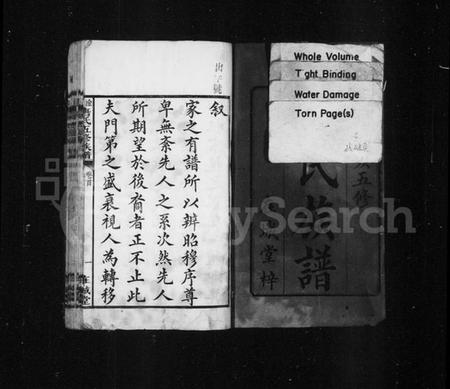 Whole Volume
Tight Binding
Water Damage
Torn Page(s)
五修
氏族譜
堂梓
叙
家之有譜所以辨昭穆序尊
卑無紊先人之系次然先人
所期望於後裔者正不止此
夫門第之盛衰視人為轉移
氏五修族譜
卷首
一
堂
MySearch